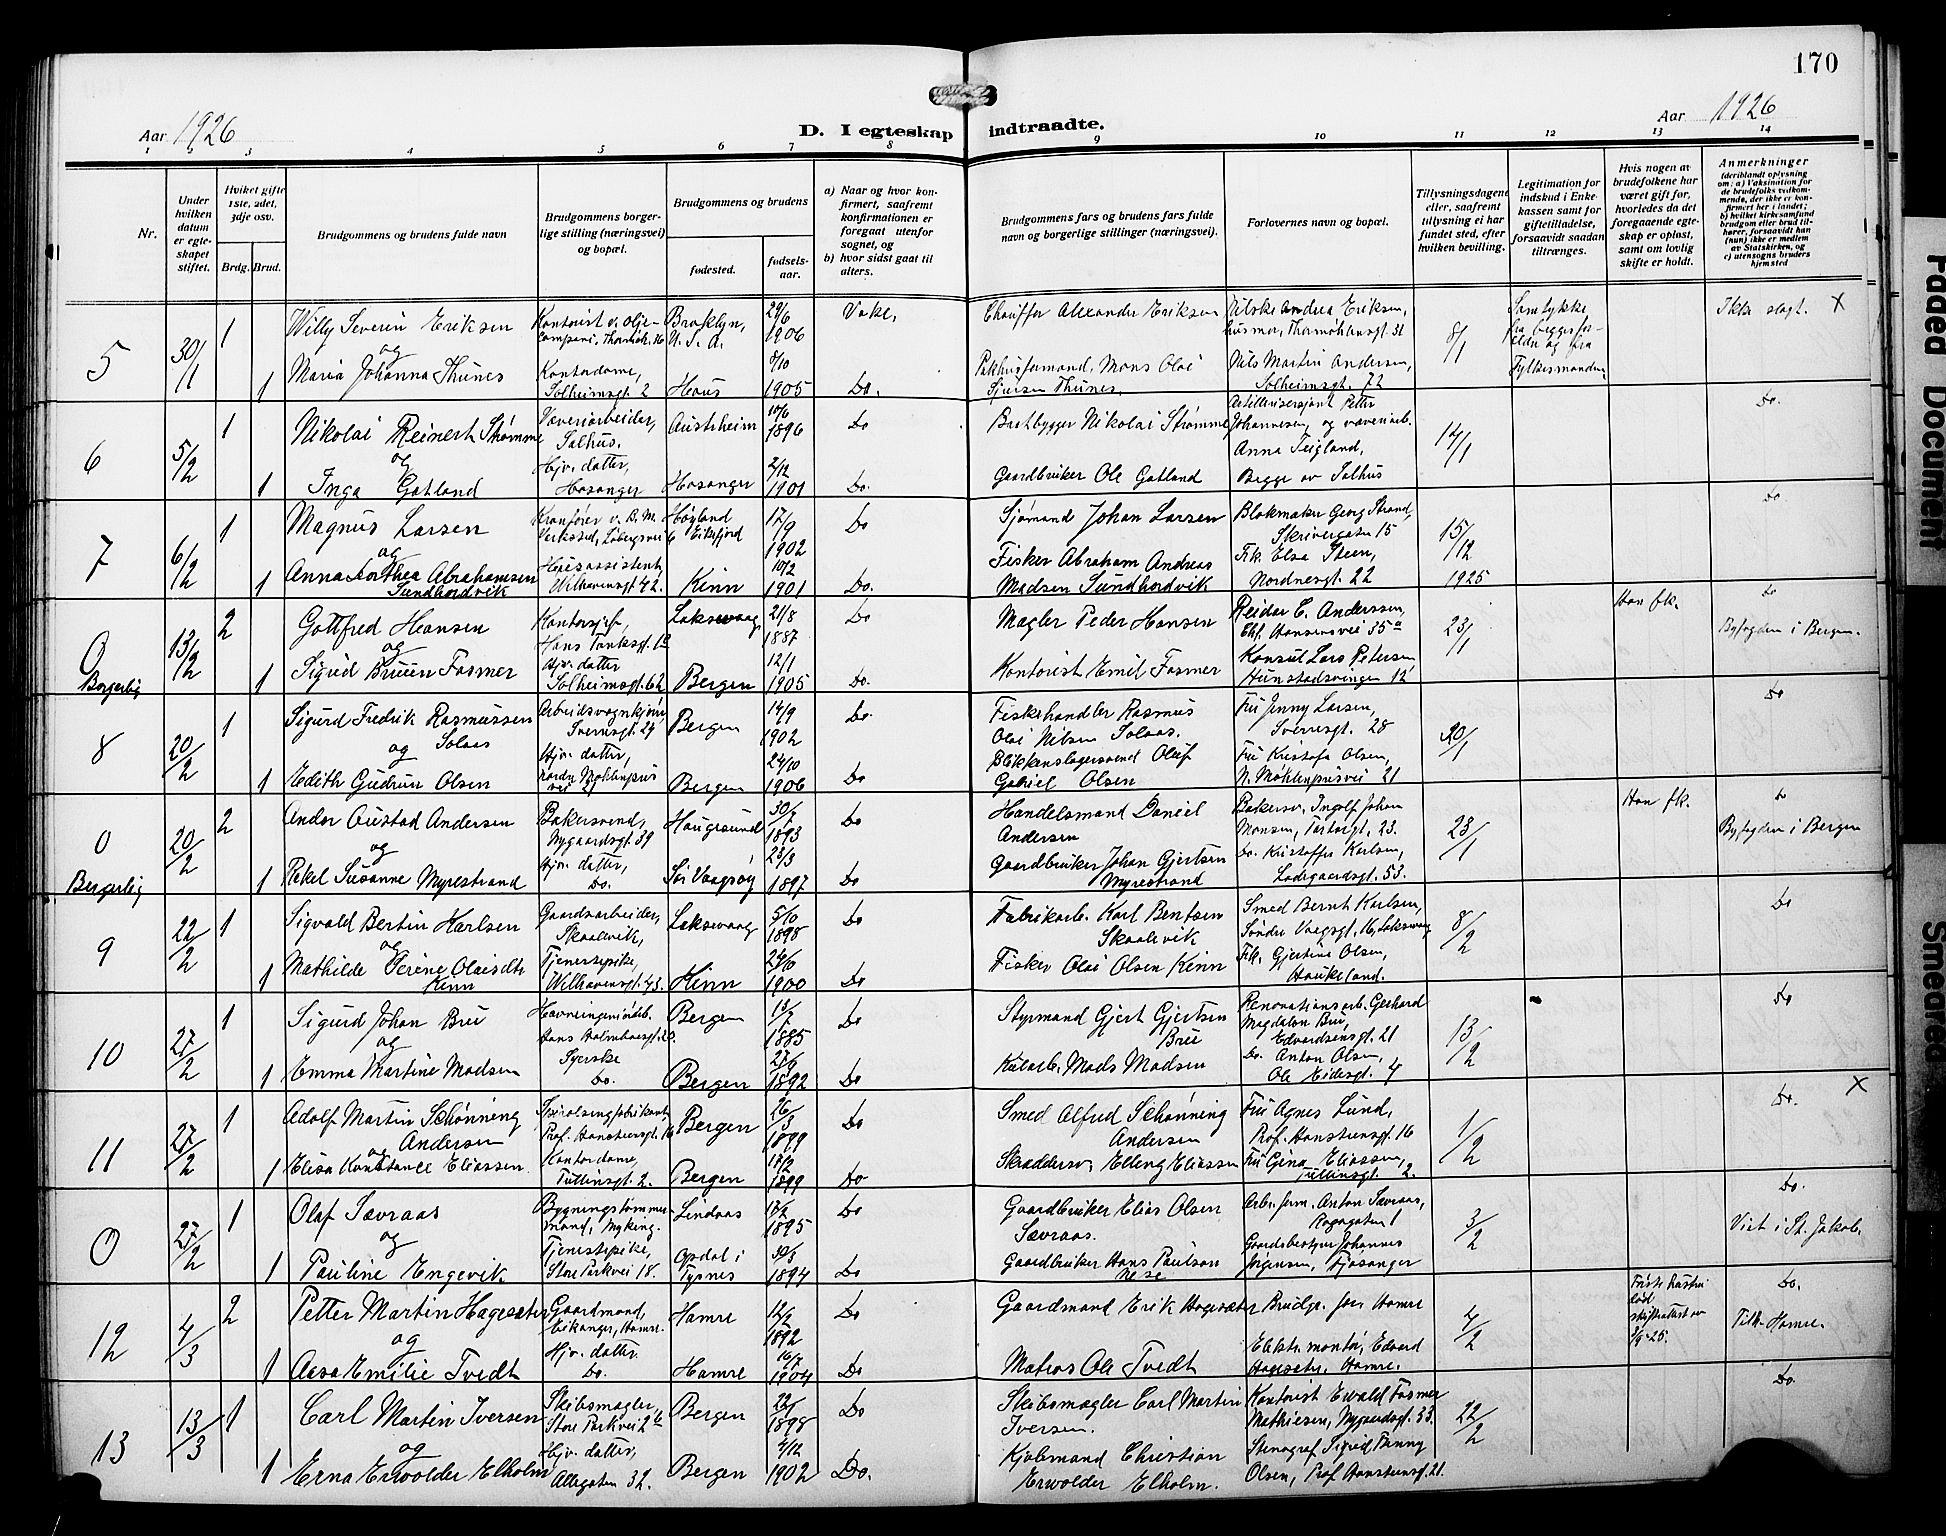 170
Aar 1926
D. I egteskap indtraadte.
Aar 1926
1 2 3 4 5 6 7 8 9 10 11 12 13 14
Nr.
Under hvilken datum er egteskapet stiftet.
Hvilket gifte 1ste, 2det, 3dje osv.
Brdg. Brud.
Brudgommens og brudens fulde navn
Brudgommens borgerlige stilling (næringsvei) og bopæl.
Brudgommens og brudens
fødested.
fødselsaar.
a) Naar og hvor konfirmert, saafremt konfirmationen er foregaat utenfor sognet, og
b) hvor sidst gaat til alters.
Brudgommens fars og brudens fars fulde navn og borgerlige stillinger (næringsvei).
Forlovernes navn og bopæl.
Tillysningsdagene eller, saafremt tillysning ei har fundet sted, efter hvilken bevilling.
Legitimation for indskud i Enkekassen samt for giftetilladelse, forsaavidt saadan tiltrænges.
Hvis nogen av brudefolkene har været gift før, hvorledes da det foregaaende egteskap er opløst, samt om lovlig skifte er holdt.
Anmerkninger
(deriblandt oplysning om: a) Vaksination for de brudefolks vedkommende, der ikke er konfirmert her i landet; b) hvilket kirkesamfund brudgom eller brud tilhører, forsaavidt han (hun) ikke er medlem av Statskirken, og c) utensogns bruders hjemsted
5 30/1 1 Willy Severin Eriksen Kontorist v. Olje- Brooklyn, 29/6 Chauffør Alexander Eriksen Andrea Eriksen, 8/1 Samtykke Ikke slegt. X
og U.S.A. 1906 fra begges for-
1 Maria Johanna Thunes Kontordame, 8/10 Pakhusformand, Mons Olai Nils Martin Andersen, eldre og fra
Solheimsgt. 2 Haus 1905 Do. Sjursen Thunes, Solheimsgt. 72 Fylkesmanden
6 5/2 1 Nikolai Reinert Strømme Væveriarbeider, Austrheim 10/6 Do Nikolai Strømme Artillerisersjant Petter 17/1 Do.
og Salhus. 1896 Johannesen, og væveriarb.
Hjv. datter, 2/12 Anna Teigland,
1 Inga Gatland Hosanger Hosanger 1901 Do. Gaardbruker Ole Gatland Begge av Salhus
7 6/2 1 Magnus Larsen Kranfører v. B. M. Høyland 17/9 Do Sjømand Johan Larsen Blokmaker Georg Strand, 15/12 Do
og Verksted, 1902 Skrivergaten 15
1 Anna Dorthea Abrahamsen 10/2 Fisker Abraham Andreas Frk. Elsa Steen, 1925
Sundhordvik Wilhavensgt. 42. Kinn 1901 Do. Madsen Sundhordvik Nordnesgt. 22
0 13/2 2 Gottfred Hansen Kontorsjef, Laksevaag 21/8 Do Megler Peder Hansen Reidar C. Anderssen, 23/1 Han fk. Do
og Hans Tanksgt. 1887 Chr. Hansensvei 35a Byfogden i Bergen.
Borgerlig 1 Sigrid Bruun Fasmer Hjv. datter 12/1 Kontorist Emil Fasmer Konsul Lars Petersen,
Solheimsgt. 62 Bergen 1905 Do. Hunstadsvingen 12
8 20/2 1 Sigurd Fredrik Rasmussen Arbeidsvognkjører Bergen 14/9 Do. Fiskehandler Rasmus Fru Jenny Larsen, 20/1 Do
og Solaas Sverresgt. 1902 Olai Nilsen Solaas. Sverresgt. 28
Hjv. datter, 24/10 Blikkenslagersvend Oluf Fru Kristofa Olsen,
1 Edith Gudrun Olsen Bergen 1906 Do Gabriel Olsen N. Møhlenprisvei 21
0 20/2 2 Andor Austad Andersen Bakersvend, Haugesund 30/7 Do Handelsmand Daniel Bakersv. Ingolf Johan 23/1 Han fk. Do
og Nygaardsgt. 39 1893 Andersen Monsen, 23. Byfogden i Bergen
Hjv. datter, 23/3 Gaardbruker Johan Gjertsen Do. Kristoffer Karlsen,
Borgerlig 1 Rakel Susanne Myrestrand Do. Sør Vaagsøy 1897 Do Myrestrand Ladegaardsgt. 53.
9 22/2 1 Sigvald Bertin Karlsen Gaardsarbeider, Laksevaag 5/10 Do Fabrikarb. Karl Bentsen Smed Bernt Karlsen, 8/2 Do
og Skaalevik, 1898 Skaalevik Laksevaag
1 Mathilde Serine Olaisdtr Tjenestepike, 24/6 Fisker Olai Olsen Kinn Frk. Gjertine Olsen,
Kinn Wilhavensgt. 43. Kinn 1900 Do Haukeland.
10 27/2 1 Sigurd Johan Bru Bergen 13/7 Do Styrmand Gjert Gjertsen Renovationsarb. Gerhard 13/2 Do
og Hans Holmboesgt. 20. 1885 Bru Magdalon Bru, Edvardsensgt. 21
Syerske 27/9 Do. Anton Olsen,
1 Emma Martine Madsen Do. Bergen 1892 Do Kularb. Mads Madsen Ole Eidesgt. 4
11 27/2 1 Adolf Martin Schønning Bergen 26/3 Do Smed Alfred Schønning Fru Agnes Lund, 1/2 Do. X
Andersen Prof. Hansteensgt. 16 1899 Andersen Prof. Hansteensgt. 16
og Kontordame,
1 Elisa Konstance Eliassen. Tullinsgt. 2. Bergen 1899 Do Skræddersv. Elling Eliassen Fru Gina Eliassen, Tullinsgt. 2.
0 27/2 1 Olaf Sævraas Bygningstømmer- Lindaas 17/2 Do Gaardbruker Elias Olsen Arb. form. Anton Sævraas, 3/2 Do.
og mand, Myking. 1895 Sævraas. Viet i St. Jakob.
Tjenestepike, Opdal i 30/3 Gaardsbestyrer Johannes
1 Pauline Engevik Store Parkvei 18. Tysnes 1894 Do Gaardbruker Hans Paulson Jørgensen, Fjøsanger
12 4/3 2 Petter Martin Hageseter Gaardmand, Hamre 12/2 Do Gaardmand Erik Hageseter Brudgr. far Hamre 4/2 Do.
og Eikanger, Hamre. 1892 Tilh. Hamre.
Hjv. datter. 16/7 Elektr. montør, Edvard
1 Aasa Emilie Tvedt Do. Hamre 1904 Do Matros Ole Tvedt Hageseter, Hamre.
13 13/3 1 Carl Martin Iversen Skibsmægler, Bergen 1898 Do Skibsmægler Carl Martin Kontorist Ewald Fasmer 22/2 Do.
og Store Parkvei Iversen. Mathiesen, Nygaardsgt. 33.
Hjv. datter, 4/12 Kjøbmand Christian Stenograf Sigrid Fanny
1 Erna Erwolder Elholm Allegaten 32. Bergen 1902 Do. Erwolder Elholm. Olsen, Prof. Hansteensgt. 21.
Faded Document
Smeared